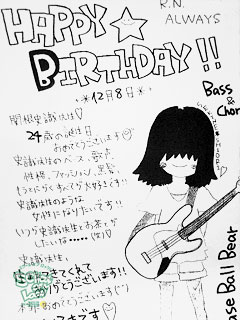 R.N.
ALWAYS
HAPPY
BIRTHDAY!!
12月8日
Bass
& Chor
関根史織先生♡
24歳の誕生日
おめでとうございます
史織先生のベース、歌声、
性格、ファッション、黒髪、
とにかくすべてが大好きです!!
史織先生のような
女性になりたいです!!
いつか史織先生とお茶とか
したいな
史織先生、
生まれてきてくれて
ありがとうございます!!
本邦おめでとうございます
大好きです
ase Ball Bear